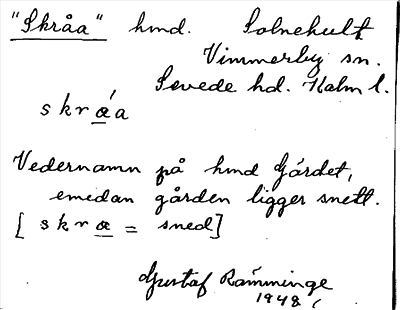 "Skråa" hmd. Solnehult
Vimmerby sn.
Sevede hd. Kalm l.
skrǻa
Vedernamn på hmd Gårdet,
emedan gården ligger snett.
[ skrå = sned]
Gustaf Ramminge
1948